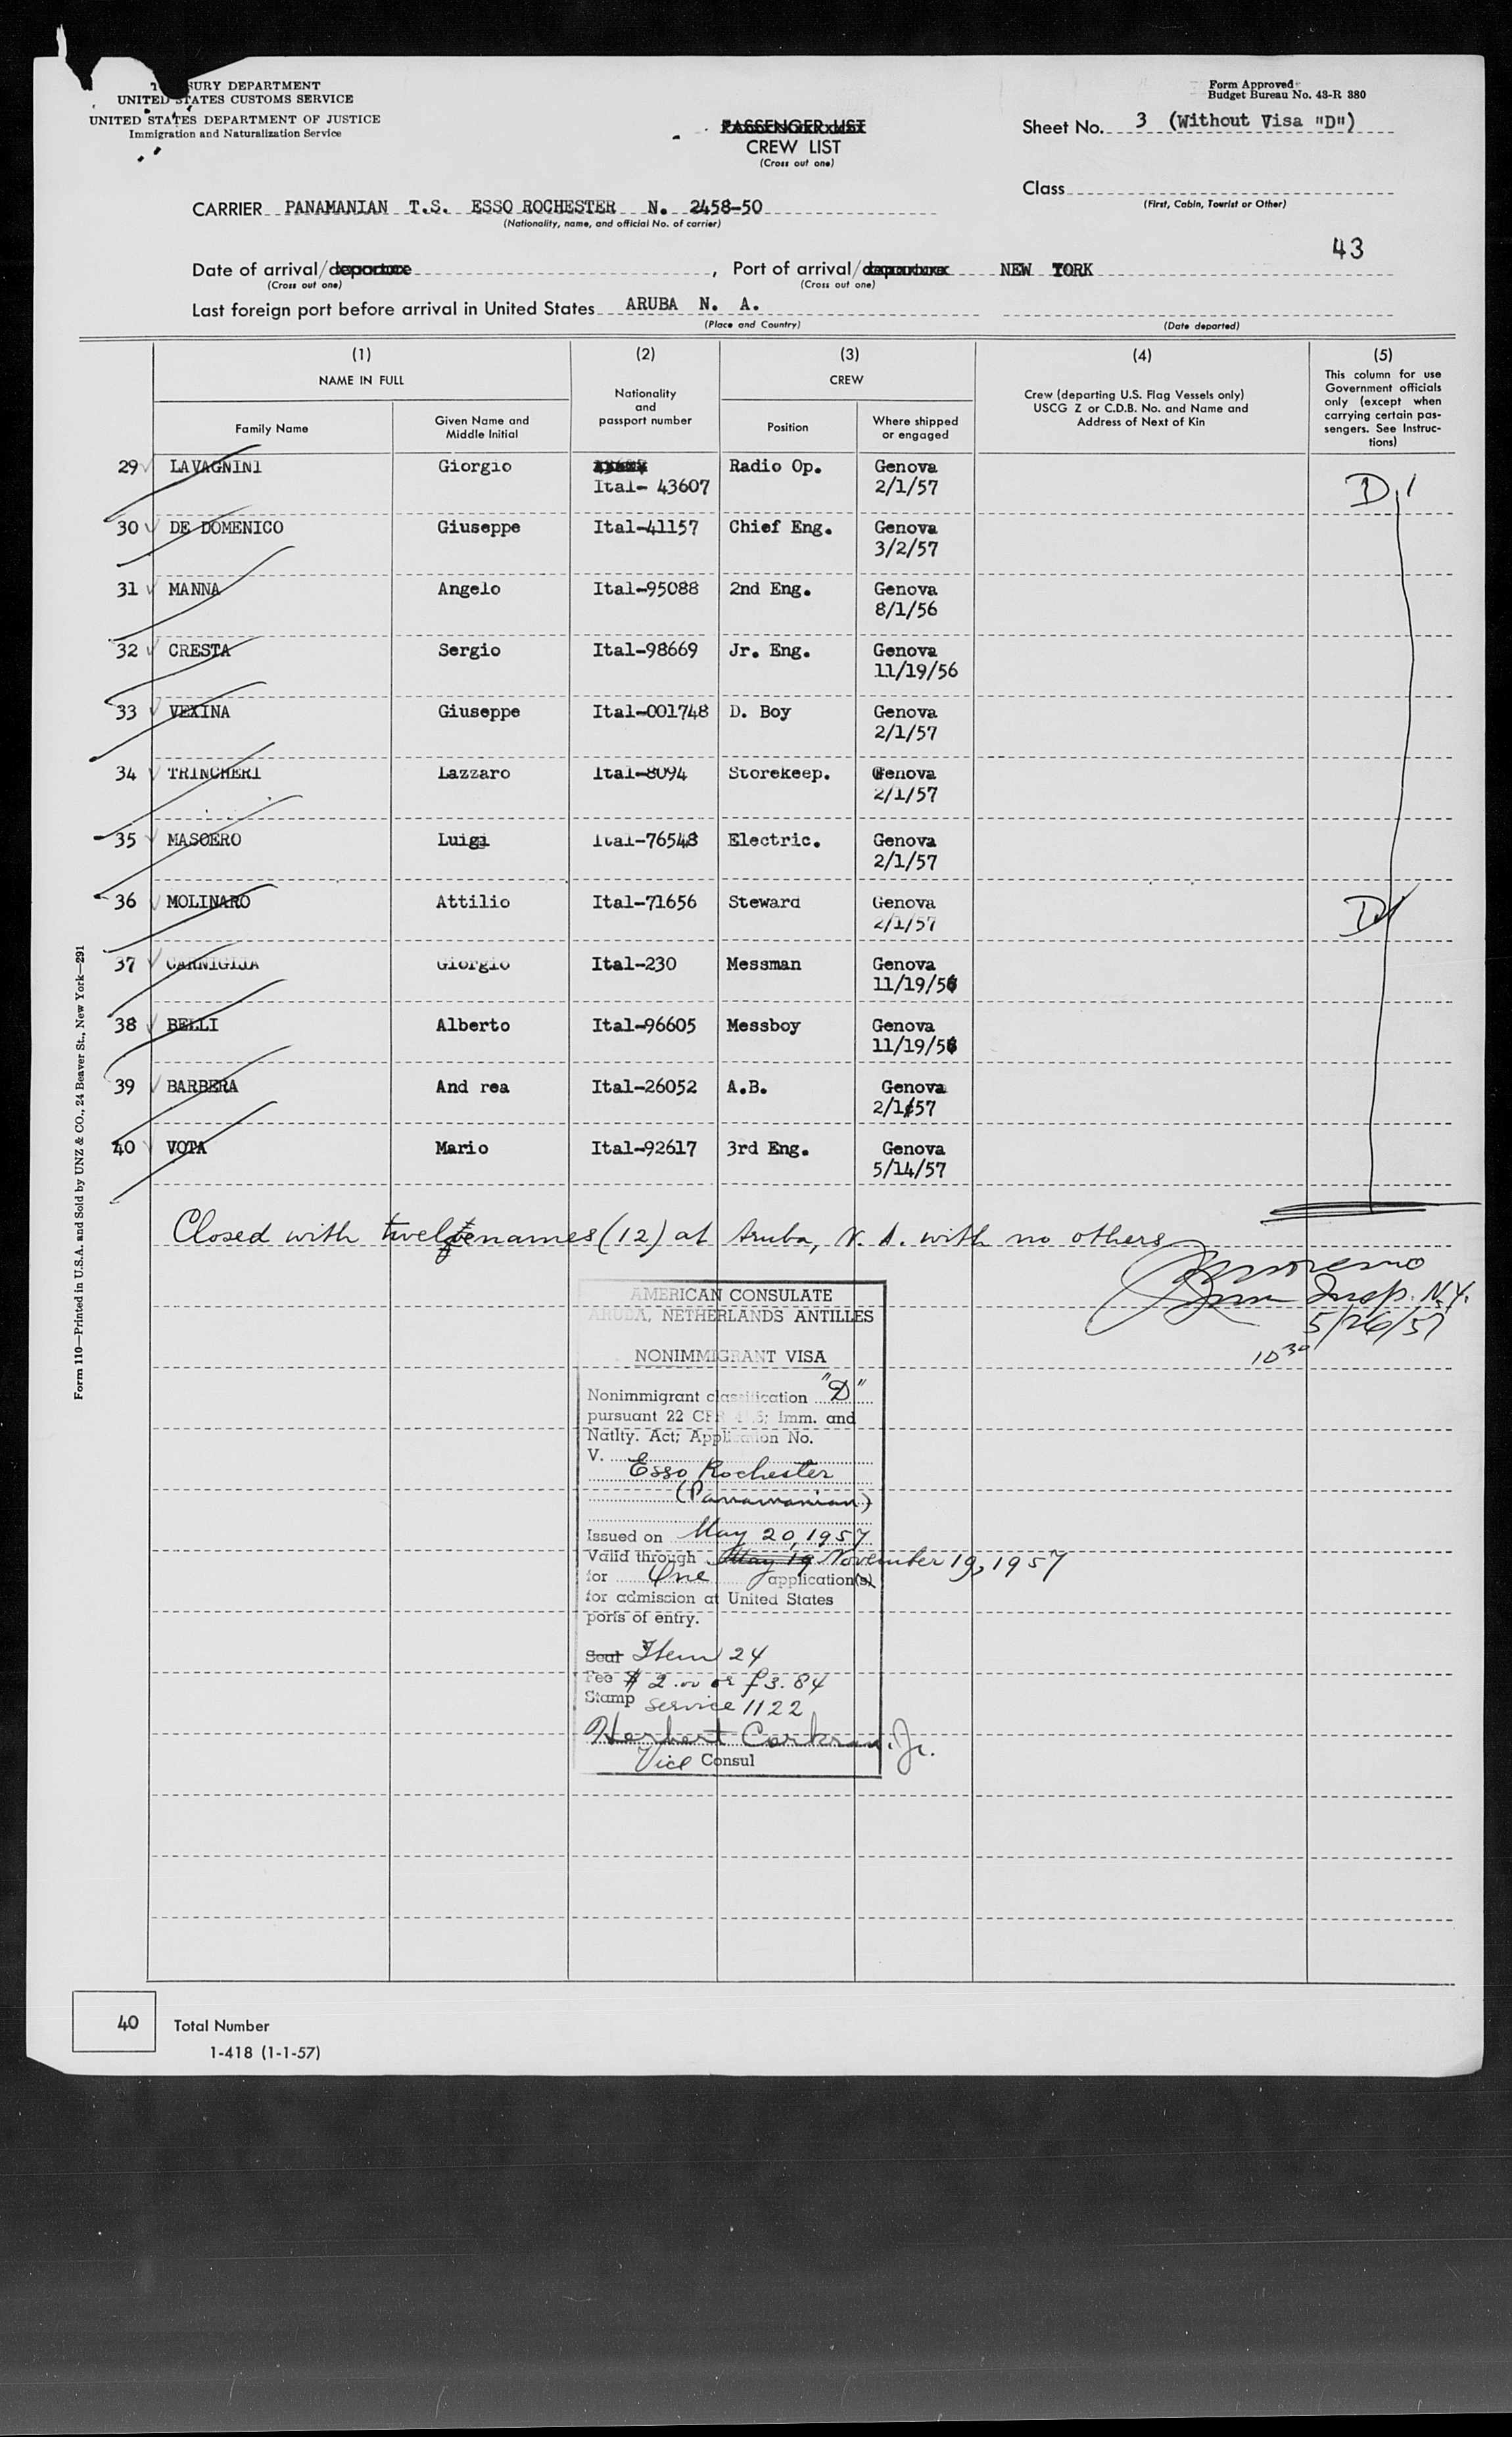 SURY DEPARTMENT
UNITED STATES CUSTOMS SERVICE
UNITED STATES DEPARTMENT OF JUSTICE
Immigration and Naturalization Service
Form Approved
Budget Bureau No. 43-R 380
PASSENGER LIST
CREW LIST
(Cross out one)
Sheet No. 3 (Without Visa "D")
Class
(First, Cabin, Tourist or Other)
CARRIER PANAMANIAN T.S. ESSO ROCHESTER N. 2458-50
(Nationality, name, and official No. of carrier)
43
Date of arrival/departure , Port of arrival/departure NEW YORK
(Cross out one) (Cross out one)
Last foreign port before arrival in United States ARUBA N. A.
(Place and Country) (Date departed)
(1) (2) (3) (4) (5)
NAME IN FULL
Family Name
Given Name and Middle Initial
Nationality and passport number
CREW
Position
Where shipped or engaged
Crew (departing U.S. Flag Vessels only)
USCG Z or C.D.B. No. and Name and
Address of Next of Kin
This column for use
Government officials
only (except when
carrying certain pas-
sengers. See Instruc-
tions)
29 LAVAGNINI Giorgio Ital- 43607 Radio Op. Genova 2/1/57 D
30 DE DOMENICO Giuseppe Ital-41157 Chief Eng. Genova 3/2/57
31 MANNA Angelo Ital-95088 2nd Eng. Genova 8/1/56
32 CRESTA Sergio Ital-98669 Jr. Eng. Genova 11/19/56
33 VEXINA Giuseppe Ital-001748 D. Boy Genova 2/1/57
34 TRINCHERI Lazzaro Ital-8094 Storekeep. Genova 2/1/57
35 MASOERO Luigi Ital-76548 Electric. Genova 2/1/57
36 MOLINARO Attilio Ital-71656 Steward Genova 2/1/57 D
37 CARNIGLIA Giorgio Ital-230 Messman Genova 11/19/56
38 BELLI Alberto Ital-96605 Messboy Genova 11/19/56
39 BARBERA And rea Ital-26052 A.B. Genova 2/1/57
40 VOTA Mario Ital-92617 3rd Eng. Genova 5/14/57
Closed with twelve names (12) at Aruba, N. A. with no others
Imm Insp. N.Y.
5/26/57
10 30
AMERICAN CONSULATE
ARUBA, NETHERLANDS ANTILLES
NONIMMIGRANT VISA
Nonimmigrant classification "D"
pursuant 22 CFR 41.5; Imm. and
Natlty. Act; Application No.
V.
Esso Rochester
(Panamanian)
Issued on May 20, 1957
Valid through May 19 November 19, 1957
for One application(s)
for admission at United States
ports of entry.
Seal Item 24
Fee $ 2.00 or f 3.84
Stamp service 1122
Herbert Corkran, Jr.
Vice Consul
Form 110—Printed in U.S.A. and Sold by UNZ & CO., 24 Beaver St., New York—291
40 Total Number
1-418 (1-1-57)